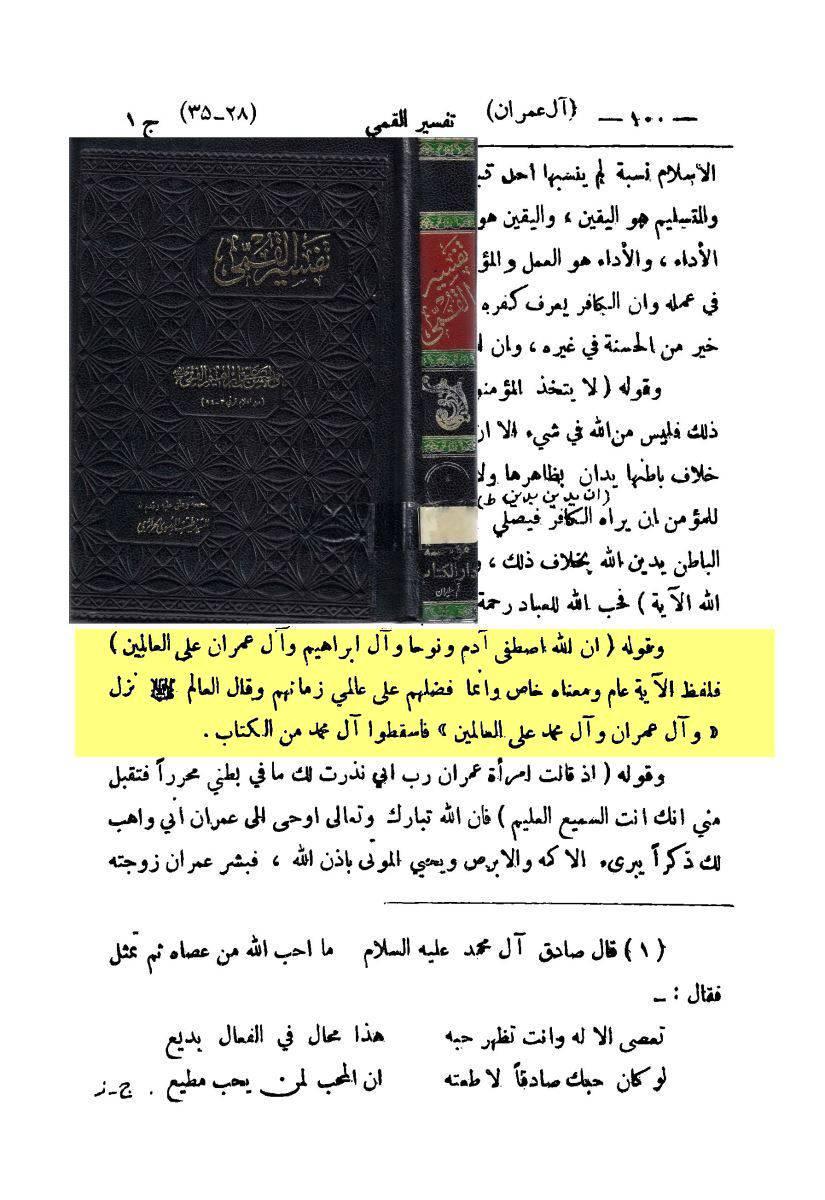 — ١٠٠ —
(آل عمران)
تفسير القمي
(٢٨-٣٥)
ج ١
الأسلام نسبة لم ينسبها احد
والتسليم هو اليقين ، واليقين هو
الأداء ، والأداء هو العمل والمؤ
في عمله وان الكافر يعرف كفره
خير من الحسنة في غيره ، وان
وقوله ( لا يتخذ المؤمنو
ذلك فليس من الله في شيء الا ان
خلاف باطنها يدان بظاهرها ولا
(ان يدين بدين ط)
للمؤمن ان يراه الكافر فيصلي
الباطن يدين الله بخلاف ذلك ،
الله الآية ) فحب الله للعباد رحمة
تفسير القمي
تفسير القمي
دار الكتاب
قم - ايران
وقوله ( ان الله اصطفى آدم ونوحا وآل ابراهيم وآل عمران على العالمين )
فلفظ الآية عام ومعناه خاص وانما فضلهم على عالمي زمانهم وقال العالم نزل
« وآل عمران وآل محمد على العالمين » فأسقطوا آل محمد من الكتاب .
وقوله ( اذ قالت امرأة عمران رب اني نذرت لك ما في بطني محرراً فتقبل
مني انك انت السميع العليم ) فان الله تبارك وتعالى اوحى الى عمران اني واهب
لك ذكراً يبرىء الاكمه والابرص ويحيي الموتى باذن الله ، فبشر عمران زوجته
(١) قال صادق آل محمد عليه السلام ما احب الله من عصاه ثم تمثل
فقال : ـ
تعصى الاله وانت تظهر حبه هذا محال في الفعال بديع
لو كان حبك صادقاً لاطعته ان المحب لمن يحب مطيع . ج ـ ز